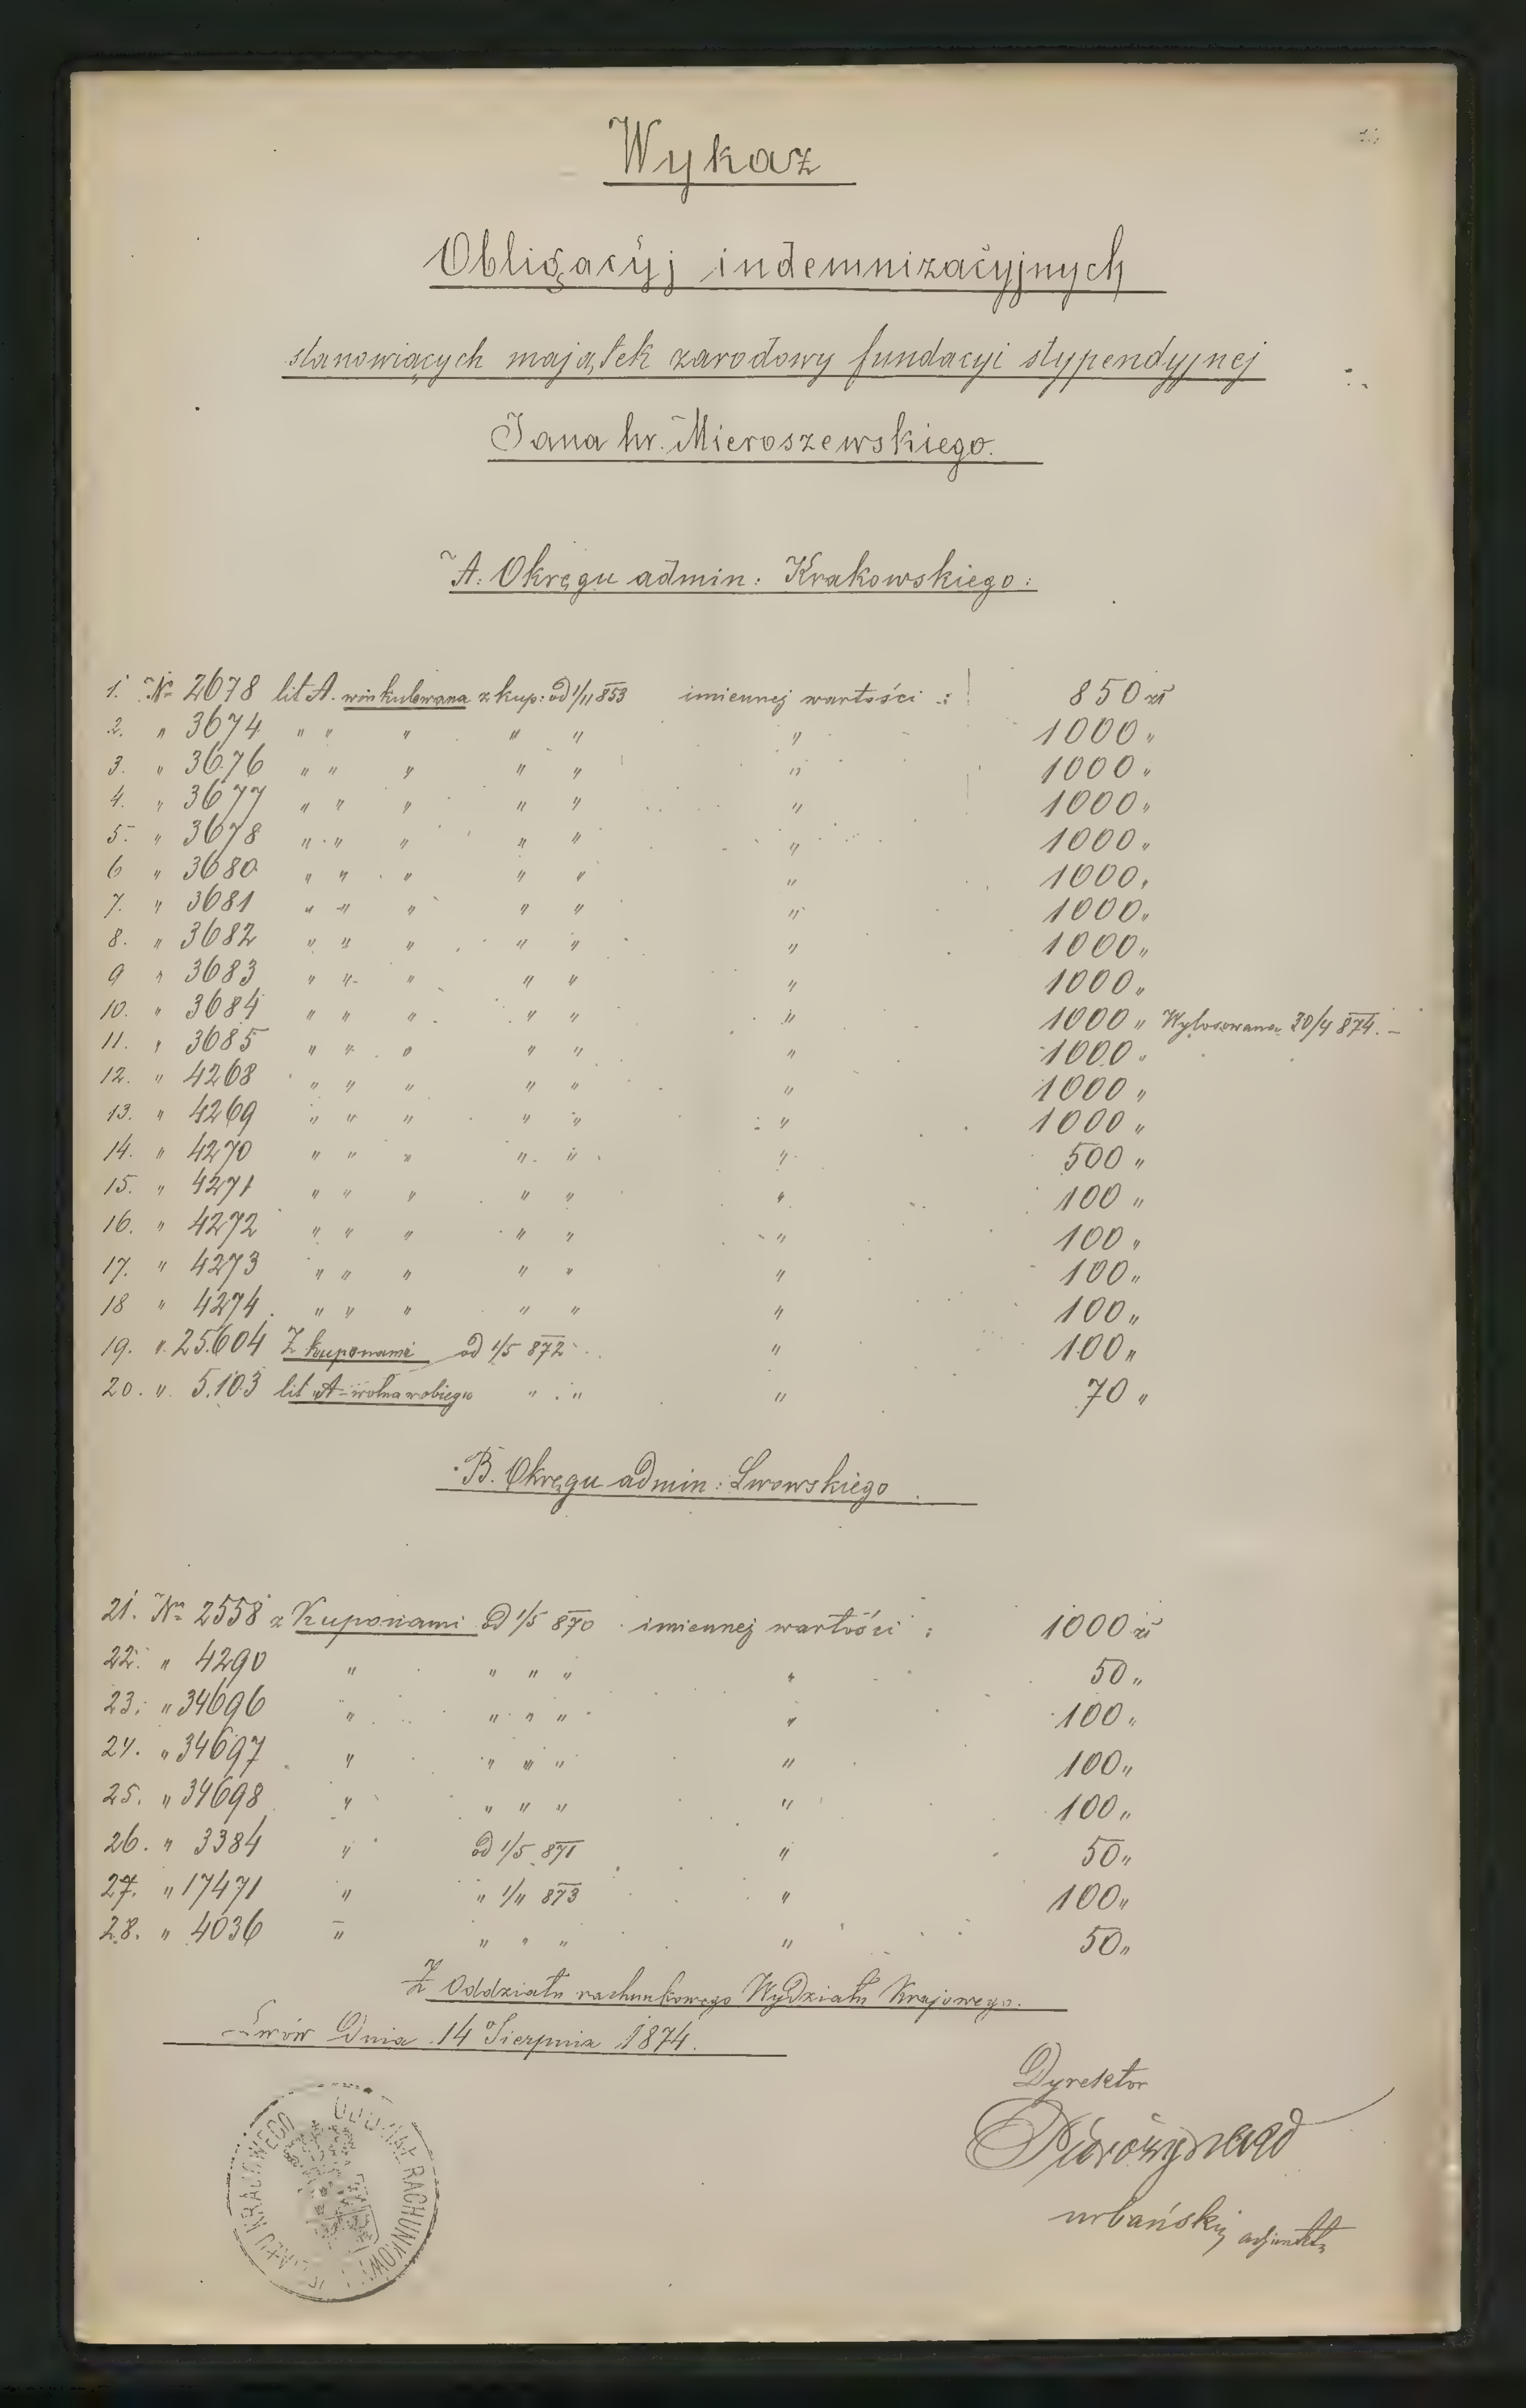 Wykaz
Obligacyj indemnizacyjnych
stanowiących majątek zarodowy fundacyi stypendyjnej
Jana hr. Mieroszewskiego.
A. Okręgu admin: Krakowskiego:
1. № 2678 lit A. winkulowana z kup: od 1/11 853 imiennej wartości : 850 zł
2. " 3674 " " " " " " 1000 "
3. " 3676 " " " " " " 1000 "
4. " 3677 " " " " " " 1000 "
5. " 3678 " " " " " " 1000 "
6 " 3680 " " " " " " 1000 "
7. " 3681 " " " " " " 1000 "
8. " 3682 " " " " " " 1000 "
9 " 3683 " " " " " " 1000 "
10. " 3684 " " " " " " 1000 " Wylosowana 30/4 874. –
11. " 3685 " " " " " " 1000 "
12. " 4268 " " " " " " 1000 "
13. " 4269 " " " " " " 1000 "
14. " 4270 " " " " " " 500 "
15. " 4271 " " " " " " 100 "
16. " 4272 " " " " " " 100 "
17. " 4273 " " " " " " 100 "
18 " 4274 " " " " " " 100 "
19. " 25.604 Z kuponami od 1/5 872 " 100 "
20. " 5.103 lit A wolna w obiegu " " " 70 "
B. Okręgu admin: Lwowskiego
21. № 2558 z Kuponami od 1/5 870 imiennej wartości : 1000 zł
22. " 4290 " " " " " 50 "
23. " 34696 " " " " " 100 "
24. " 34697 " " " " " 100 "
25. " 34698 " " " " " 100 "
26. " 3384 " od 1/5 871 " 50 "
27. " 17471 " " 1/11 873 " 100 "
28. " 4036 " " " " " 50 "
Z Oddziału rachunkowego Wydziału Krajowego.
Lwów Dnia 14 Sierpnia 1874.
Dyrektor
Urbański adjunkt
ODDZIAŁ RACHUNKOWY KRAJOWEGO